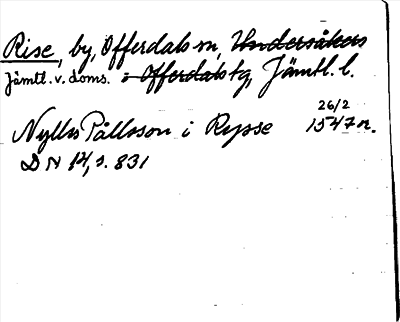 Rise, by, Offerdals sn, Undersåkers
Jämtl. v. doms. i Offerdals tg, Jämtl. l.
26/2
Nylls Pålsson i Rysse 1547 n.
DN 14, s. 831